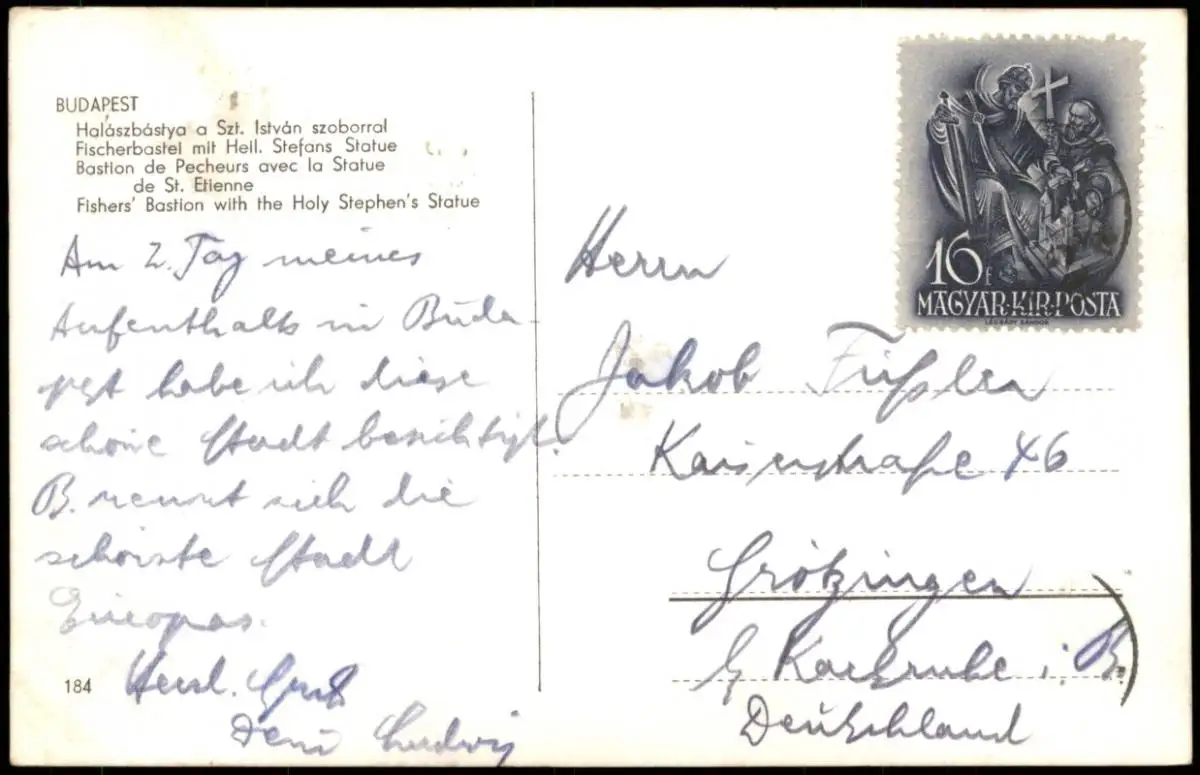 BUDAPEST
Halászbástya a Szt. István szoborral
Fischerbastei mit Heil. Stefans Statue
Bastion de Pecheurs avec la Statue
de St. Etienne
Fishers' Bastion with the Holy Stephen's Statue
Am 2. Tag meines
Aufenthalts in Buda-
pest habe ich diese
schöne Stadt besichtigt.
B. nennt sich die
schönste Stadt
Europas.
Herzl. Gruß
Dein Ludwig
184
16 f
MAGYAR·KIR·POSTA
LÉGRÁDY SÁNDOR
Herrn
Jakob Füßler
Kaiserstraße 46
Grötzingen
b/ Karlsruhe i. B.
Deutschland